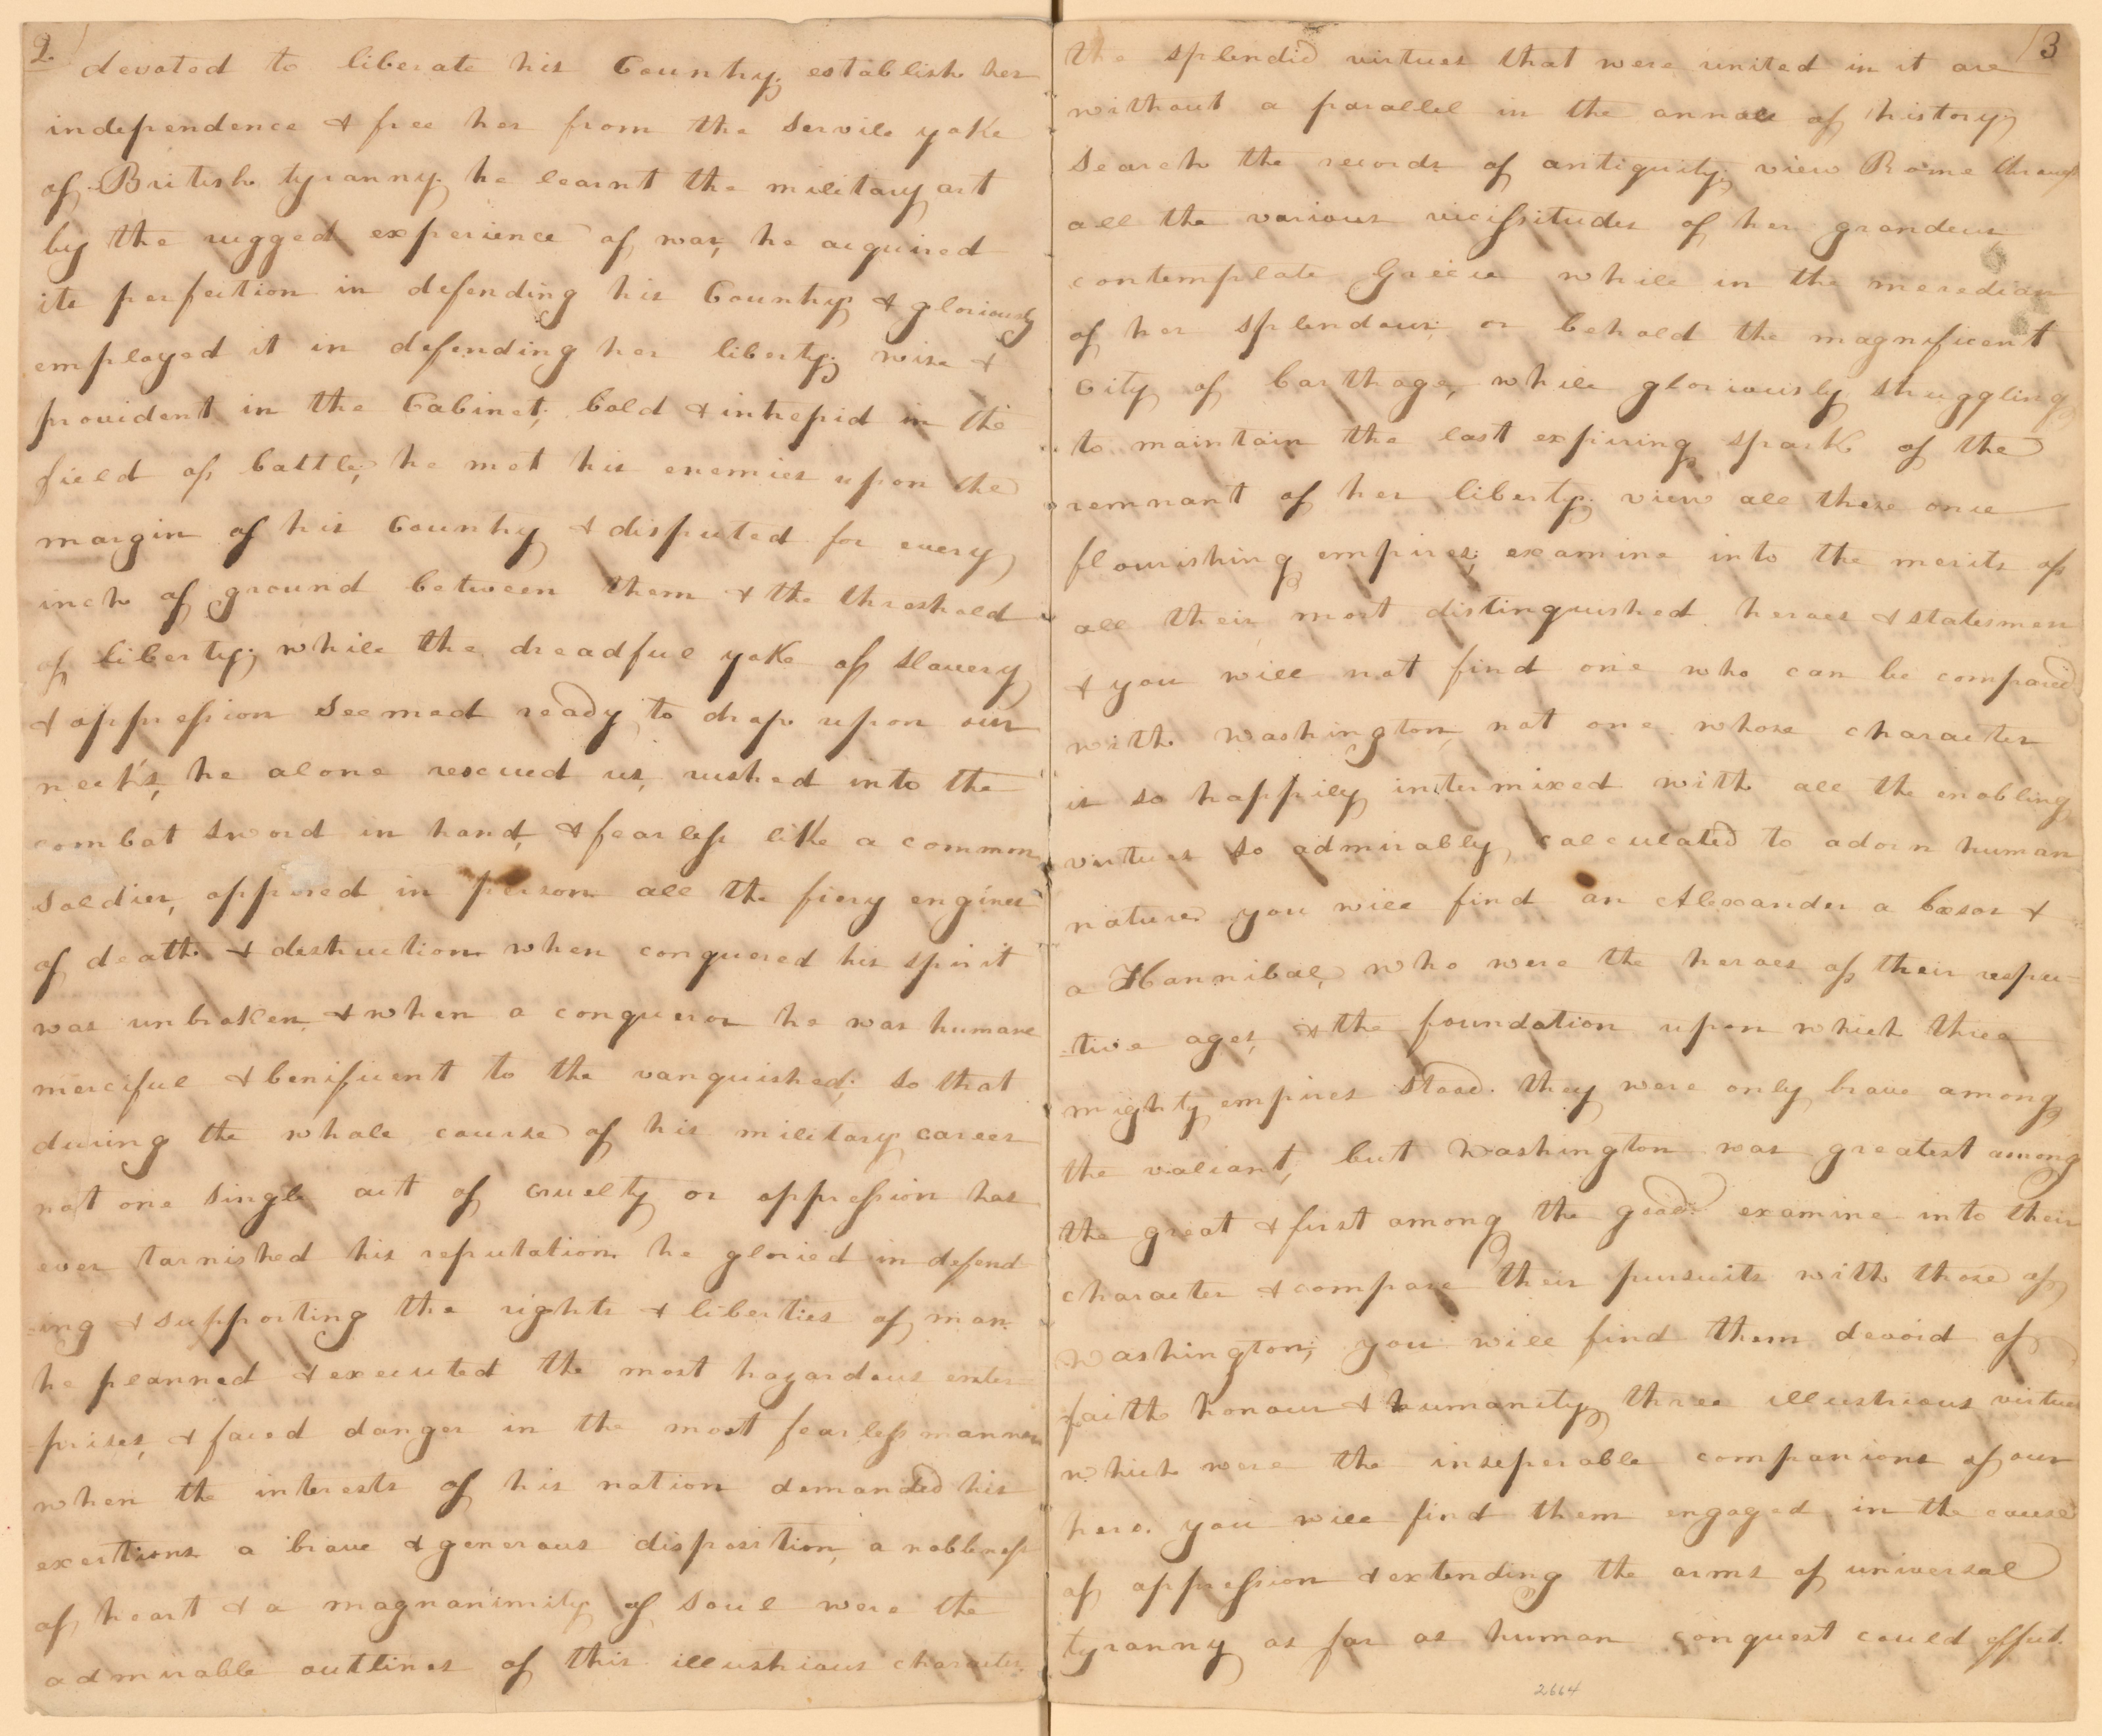 2
devoted to liberate his Country, establish her
independence & free her from the servile yoke
of British tyranny; he learnt the military art
by the rugged experience of war, he acquired
its perfection in defending his Country; & gloriously
employed it in defending her liberty; wise &
provident in the Cabinet; bold & intrepid in the
field of battle; he met his enemies upon the
margin of his Country & disputed for every
inch of ground between them & the threshold
of liberty; while the dreadful yoke of slavery
& oppression seemed ready to drop upon our
neck's, he alone rescued us, rushed into the
combat sword in hand, & fearless like a common
soldier, opposed in person all the fiery engines
of death & destruction when conquered his spirit
was unbroken & when a conqueror he was humane
merciful & benificent to the vanquished; so that
during the whole course of his military career
not one single act of cruelty or oppression has
ever tarnished his reputation he gloried in defend
-ing & supporting the rights & liberties of man.
he planned & executed the most hazardous enter
-prises, & faced danger in the most fearless manner
when the interests of his nation demanded his
exertions a brave & generous disposition, a nobleness
of heart & a magnanimity of soul were the
admirable outlines of this illustrious character.
3
the splendid virtues that were united in it are
without a parallel in the annals of history;
search the records of antiquity; view Rome through
all the various vicissitudes of her grandeur
contemplate Greece while in the meredian
of her splendour; or behold the magnificent
city of Carthage, while gloriously struggling
to maintain the last expiring spark of the
remnant of her liberty; view all these once
flourishing empires; examine into the merits of
all their most distinguished heroes & statesmen
& you will not find one who can be compared
with Washington, not one whose character
is so happily intermixed with all the enobling
virtues so admirably, calculated to adorn human
nature you will find an Alexander a Cæsar &
a Hannibal, who were the heroes of their respec-
-tive ages, & the foundation upon which three
mighty empires stood. they were only brave among
the valiant; but Washington was greatest among
the great & first among the good. examine into their
character & compare their pursuits with those of
Washington; you will find them devoid of
faith honour & humanity, three illustrious virtues
which were the inseperable companions of our
hero. you will find them engaged in the cause
of oppression & extending the arms of universal
tyranny as far as human conquest could effect.
2664